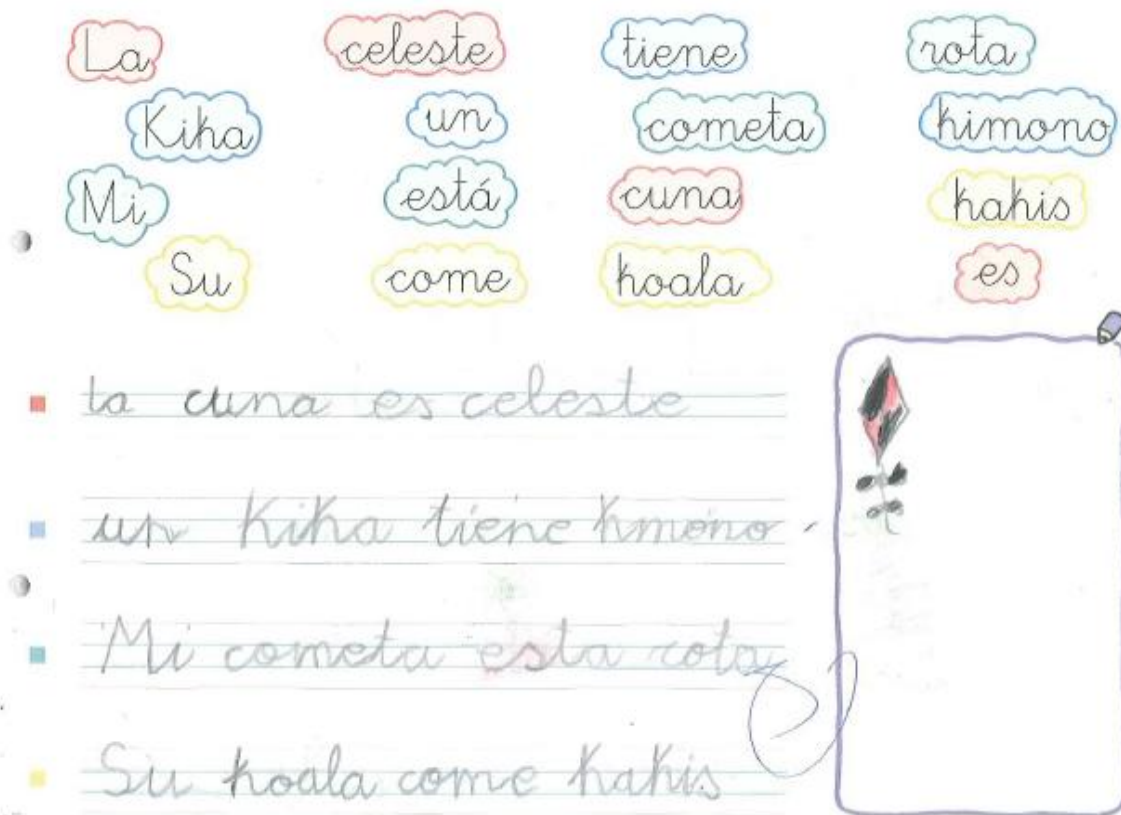 La celeste tiene rota
Kika un cometa kimono
Mi está cuna kakis
Su come koala es
la cuna es celeste
un Kika tiene kmono
Mi cometa esta rota
Su koala come kakis